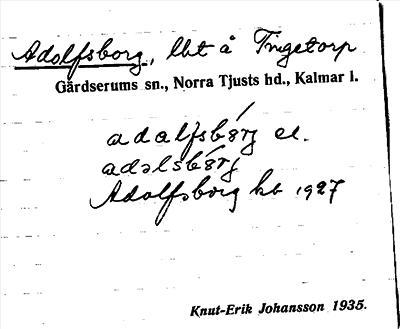 Adolfsborg, lht å Ingetorp
Gärdserums sn., Norra Tjusts hd., Kalmar l.
adalfsbórj el.
adəlsbórj
Adolfsborg hb 1927
Knut-Erik Johansson 1935.